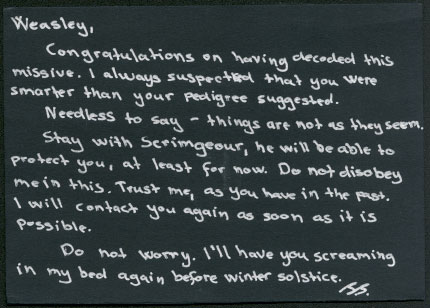 Weasley,
Congratulations on having decoded this
missive. I always suspected that you were
smarter than your pedigree suggested.
Needless to say - things are not as they seem.
Stay with Scrimgeour, he will be able to
protect you, at least for now. Do not disobey
me in this. Trust me, as you have in the past.
I will contact you again as soon as it is
possible.
Do not worry. I'll have you screaming
in my bed again before winter solstice.